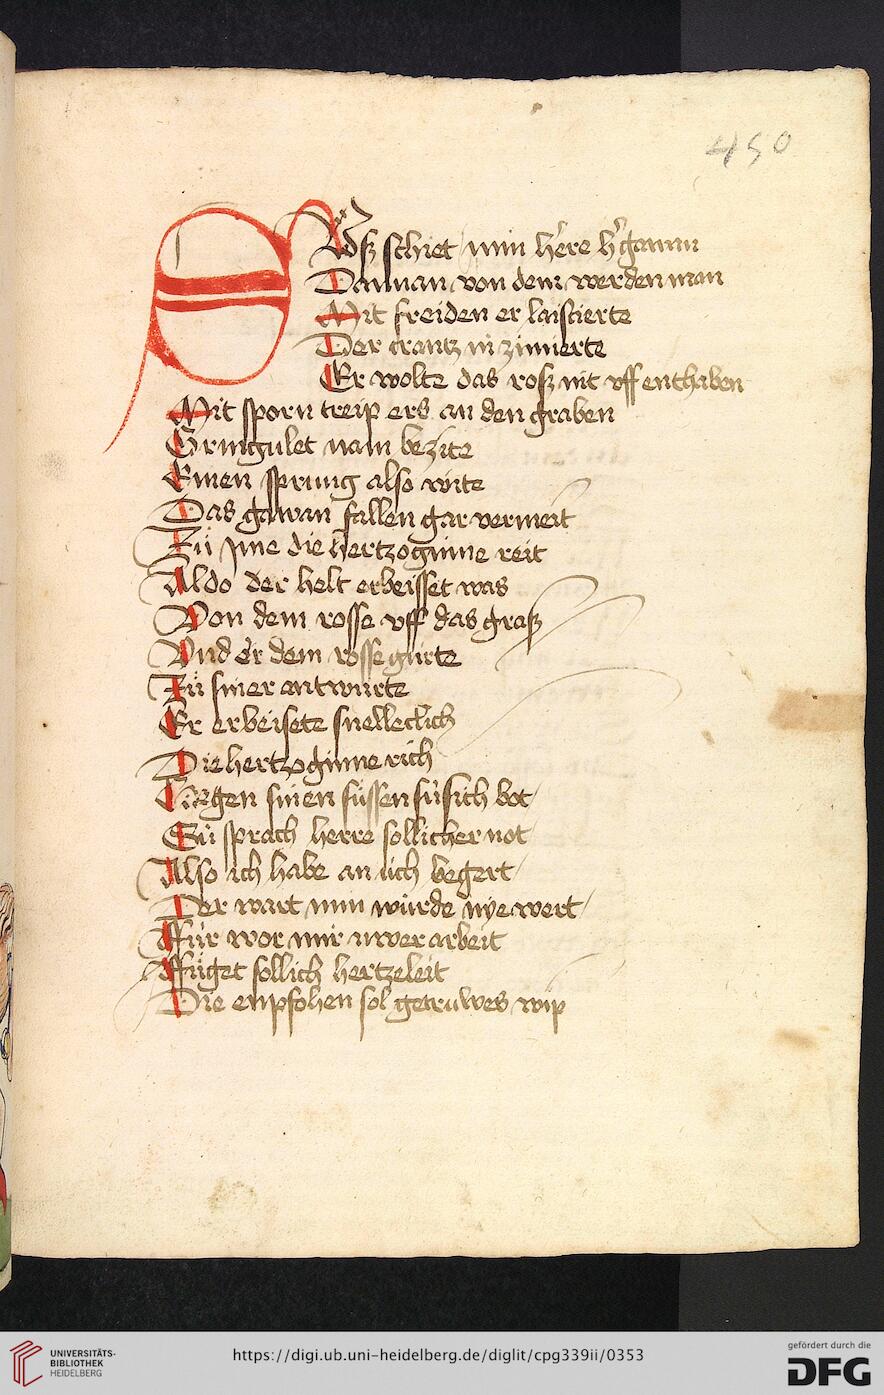 450
Alsz schiet min here hr gawan
Dannan von dem werden man
Mit freiden er laisierte
Der crantz in zimierte
Er wolte das rosz nit vff enthaben
Mit sporn treip ers an den graben
Gringulet nam bezite
Einen sprung also wite
Das gawan fallen gar vermeit
Zü jme die hertzoginne reit
Aldo der helt erbeisset was
Von dem rosse vff das grasz
Vnd er dem rosse gurte
Zü siner antwurte
Er erbeisete snelleclich
Die hertzoginne rich
Gegen sinen füssen sü sich bot
Sü sprach herre sollicher not
Also ich habe an üch begert
Der wart min würde nye wert
Für wor mir uwer arbeit
Füget sollich hertzeleit
Die enpfohen sol getruwes wip
UNIVERSITÄTS-
BIBLIOTHEK
HEIDELBERG
https://digi.ub.uni-heidelberg.de/diglit/cpg339ii/0353
gefördert durch die
DFG